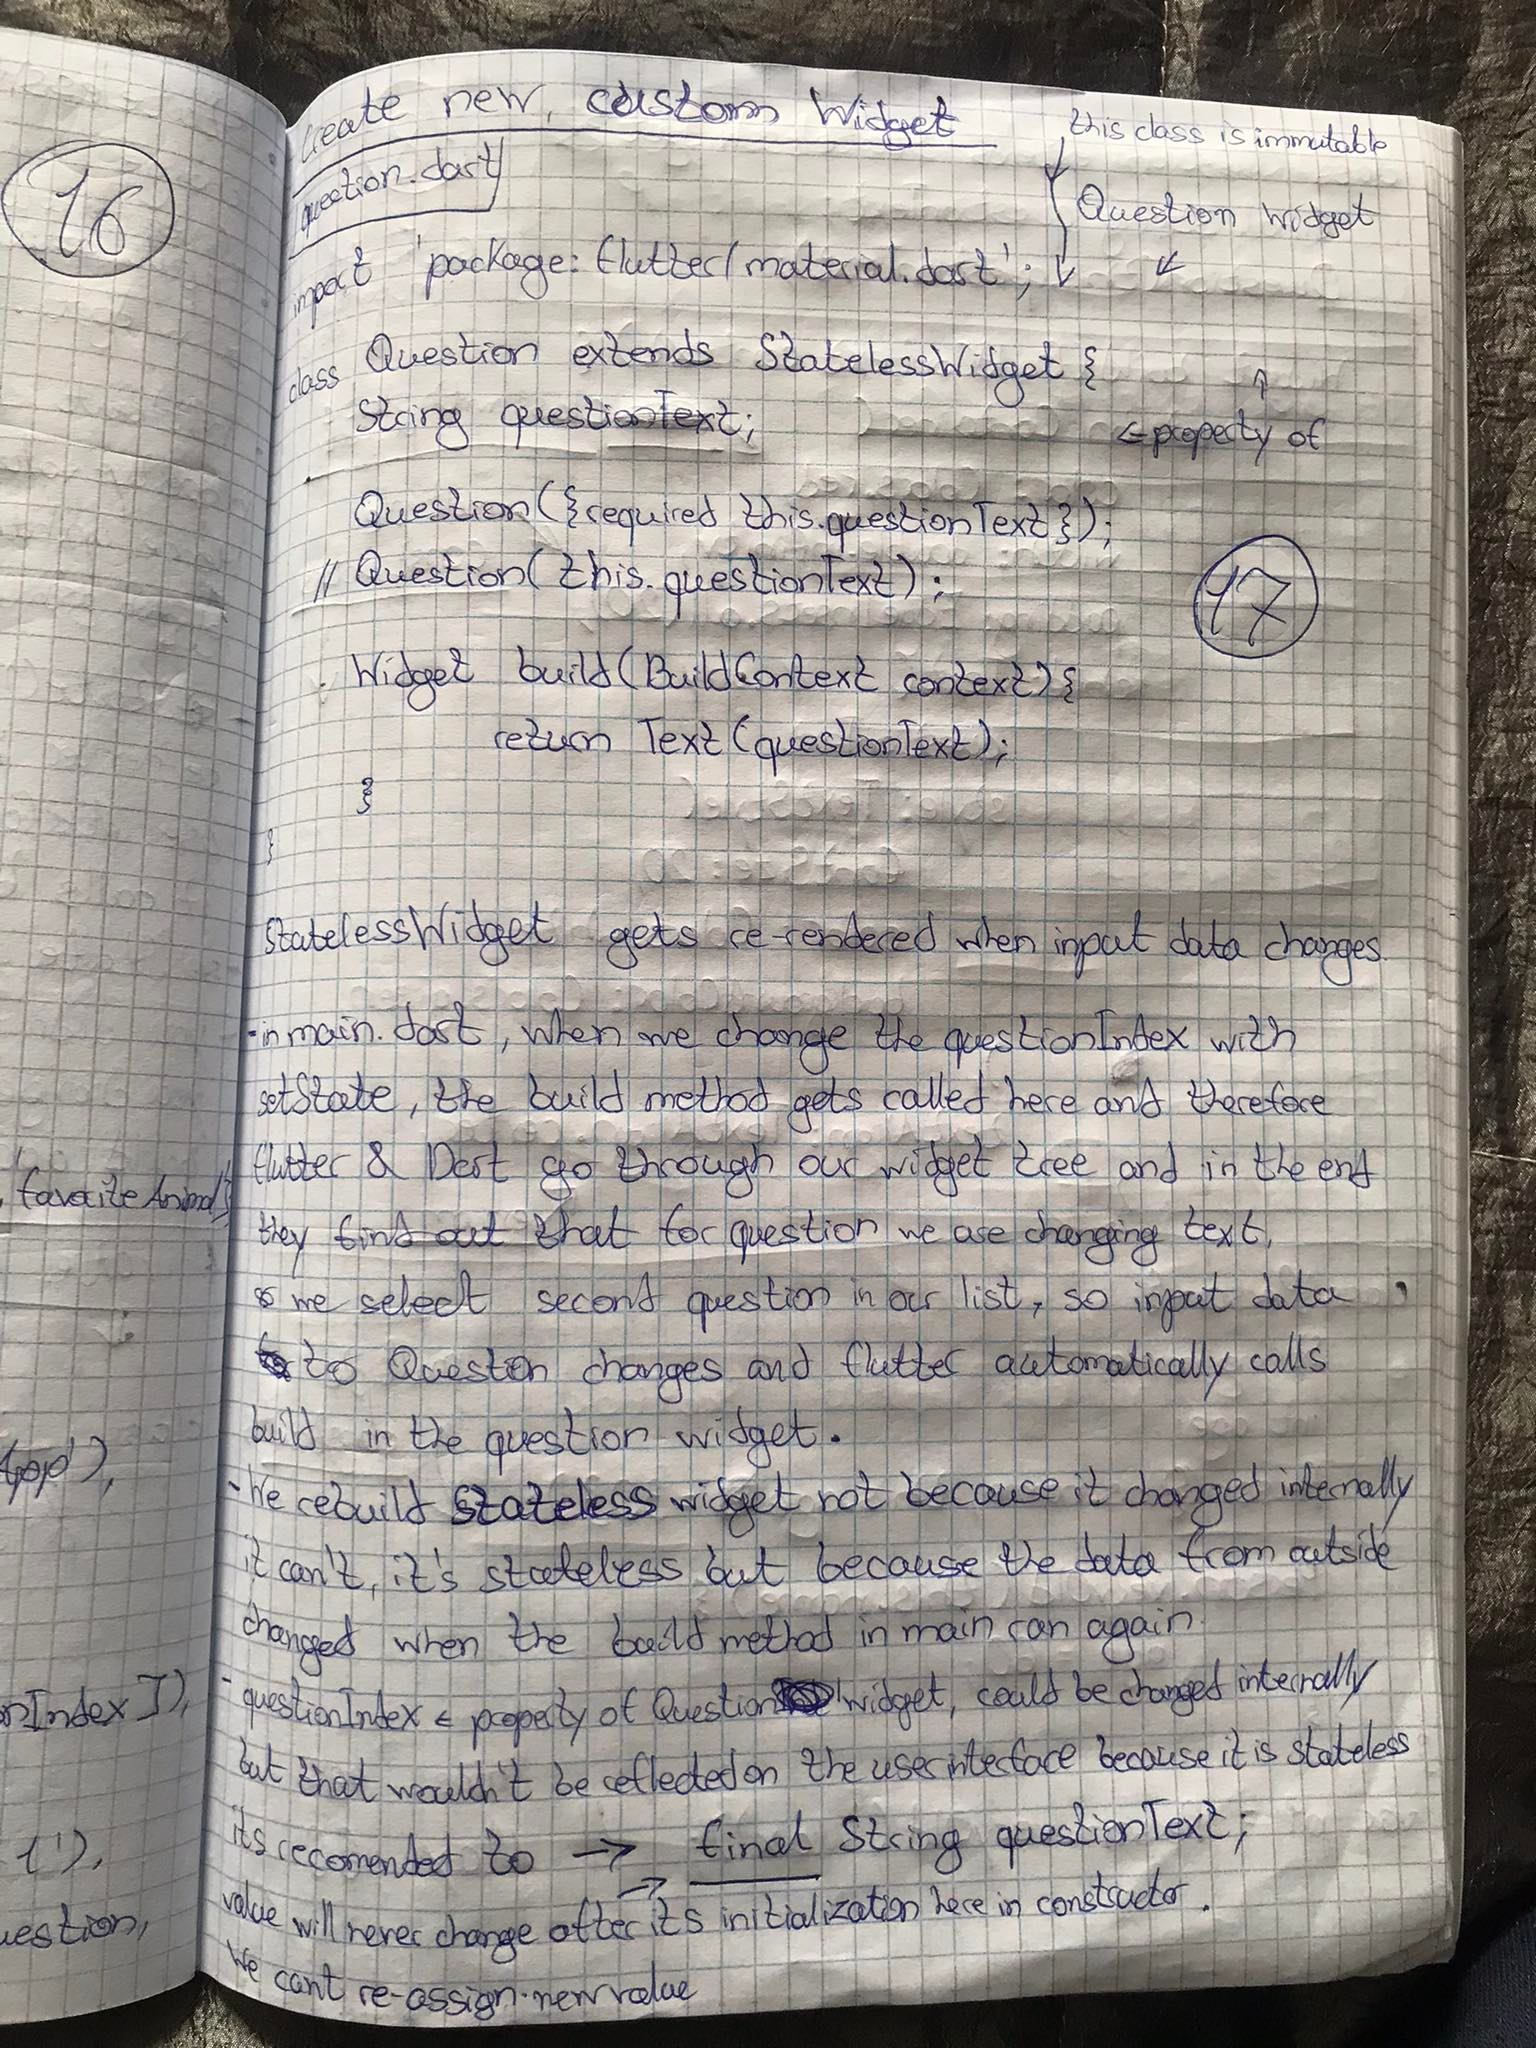 16
, favoriteAnimal'],
App'),
onIndex]),
1'),
uestion,
Create new, custom Widget
question.dart
this class is immutable
Question Widget
import 'package: flutter/material.dart';
class Question extends StatelessWidget {
String questionText;
← property of
Question({required this.questionText});
// Question(this.questionText);
17
Widget build(BuildContext context){
return Text(questionText);
}
}
StatelessWidget gets re-rendered when input data changes.
- in main.dart, when we change the questionIndex with
setState, the build method gets called here and therefore
flutter & Dart go through our widget tree and in the end
they find out that for question we are changing text,
so we select second question in our list, so input data
to Question changes and flutter automatically calls
build in the question widget.
- We rebuild stateless widget not because it changed internally
it can't, it's stateless but because the data from outside
changed when the build method in main ran again.
- questionIndex ← property of Question widget, could be changed internally
but that wouldn't be reflected on the user interface because it is stateless
its recomended to → final String questionText;
value will never change after its initialization here in constructor.
We can't re-assign new value